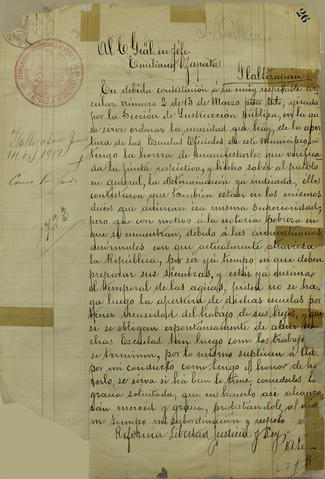 26
Al C. Gral. en Jefe
Emiliano Zapata.
Tlaltizapan.
En debida contestación á su muy respetable cir-
cular número 2 de 13 de Marzo ppdo, girada
por la Sección de Instrucción Pública, en la que
se sirve ordenar la necesidad que hay, de la aper-
tura de las Escuelas Oficiales de este Municipio,
tengo la honra de manifestarle: que verifica-
da la junta, y hecho saber al pueblo
en general, la determinación ya indicada, ellos
contestaron que también están en los mismos
deseos que animan esa misma Superioridad;
pero que con motivo á la notoria pobreza en
que se encuentran, debido á las circunstancias
anormales con que actualmente atraviesa
la República, por ser ya tiempo en que deben
preparar sus siembras, y estar ya encima
el temporal de las aguas, piden no se ha-
ga luego la apertura de dichas escuelas por
tener necesidad del trabajo de sus hijos, y que
si se obligan espontaneamente de abrir
chas Escuelas tan luego como los trabajos
se terminen, por lo mismo suplican á Ud.
por mi conducto como tengo el honor de ha-
cerlo, se sirva si ha bien lo tiene, concederles la
gracia solicitada, que en hacerlo así alcanza-
rán merced y gracia, protestándole, al mis-
mo tiempo mi subordinación y respeto.
Reforma Libertad Justicia y Ley.